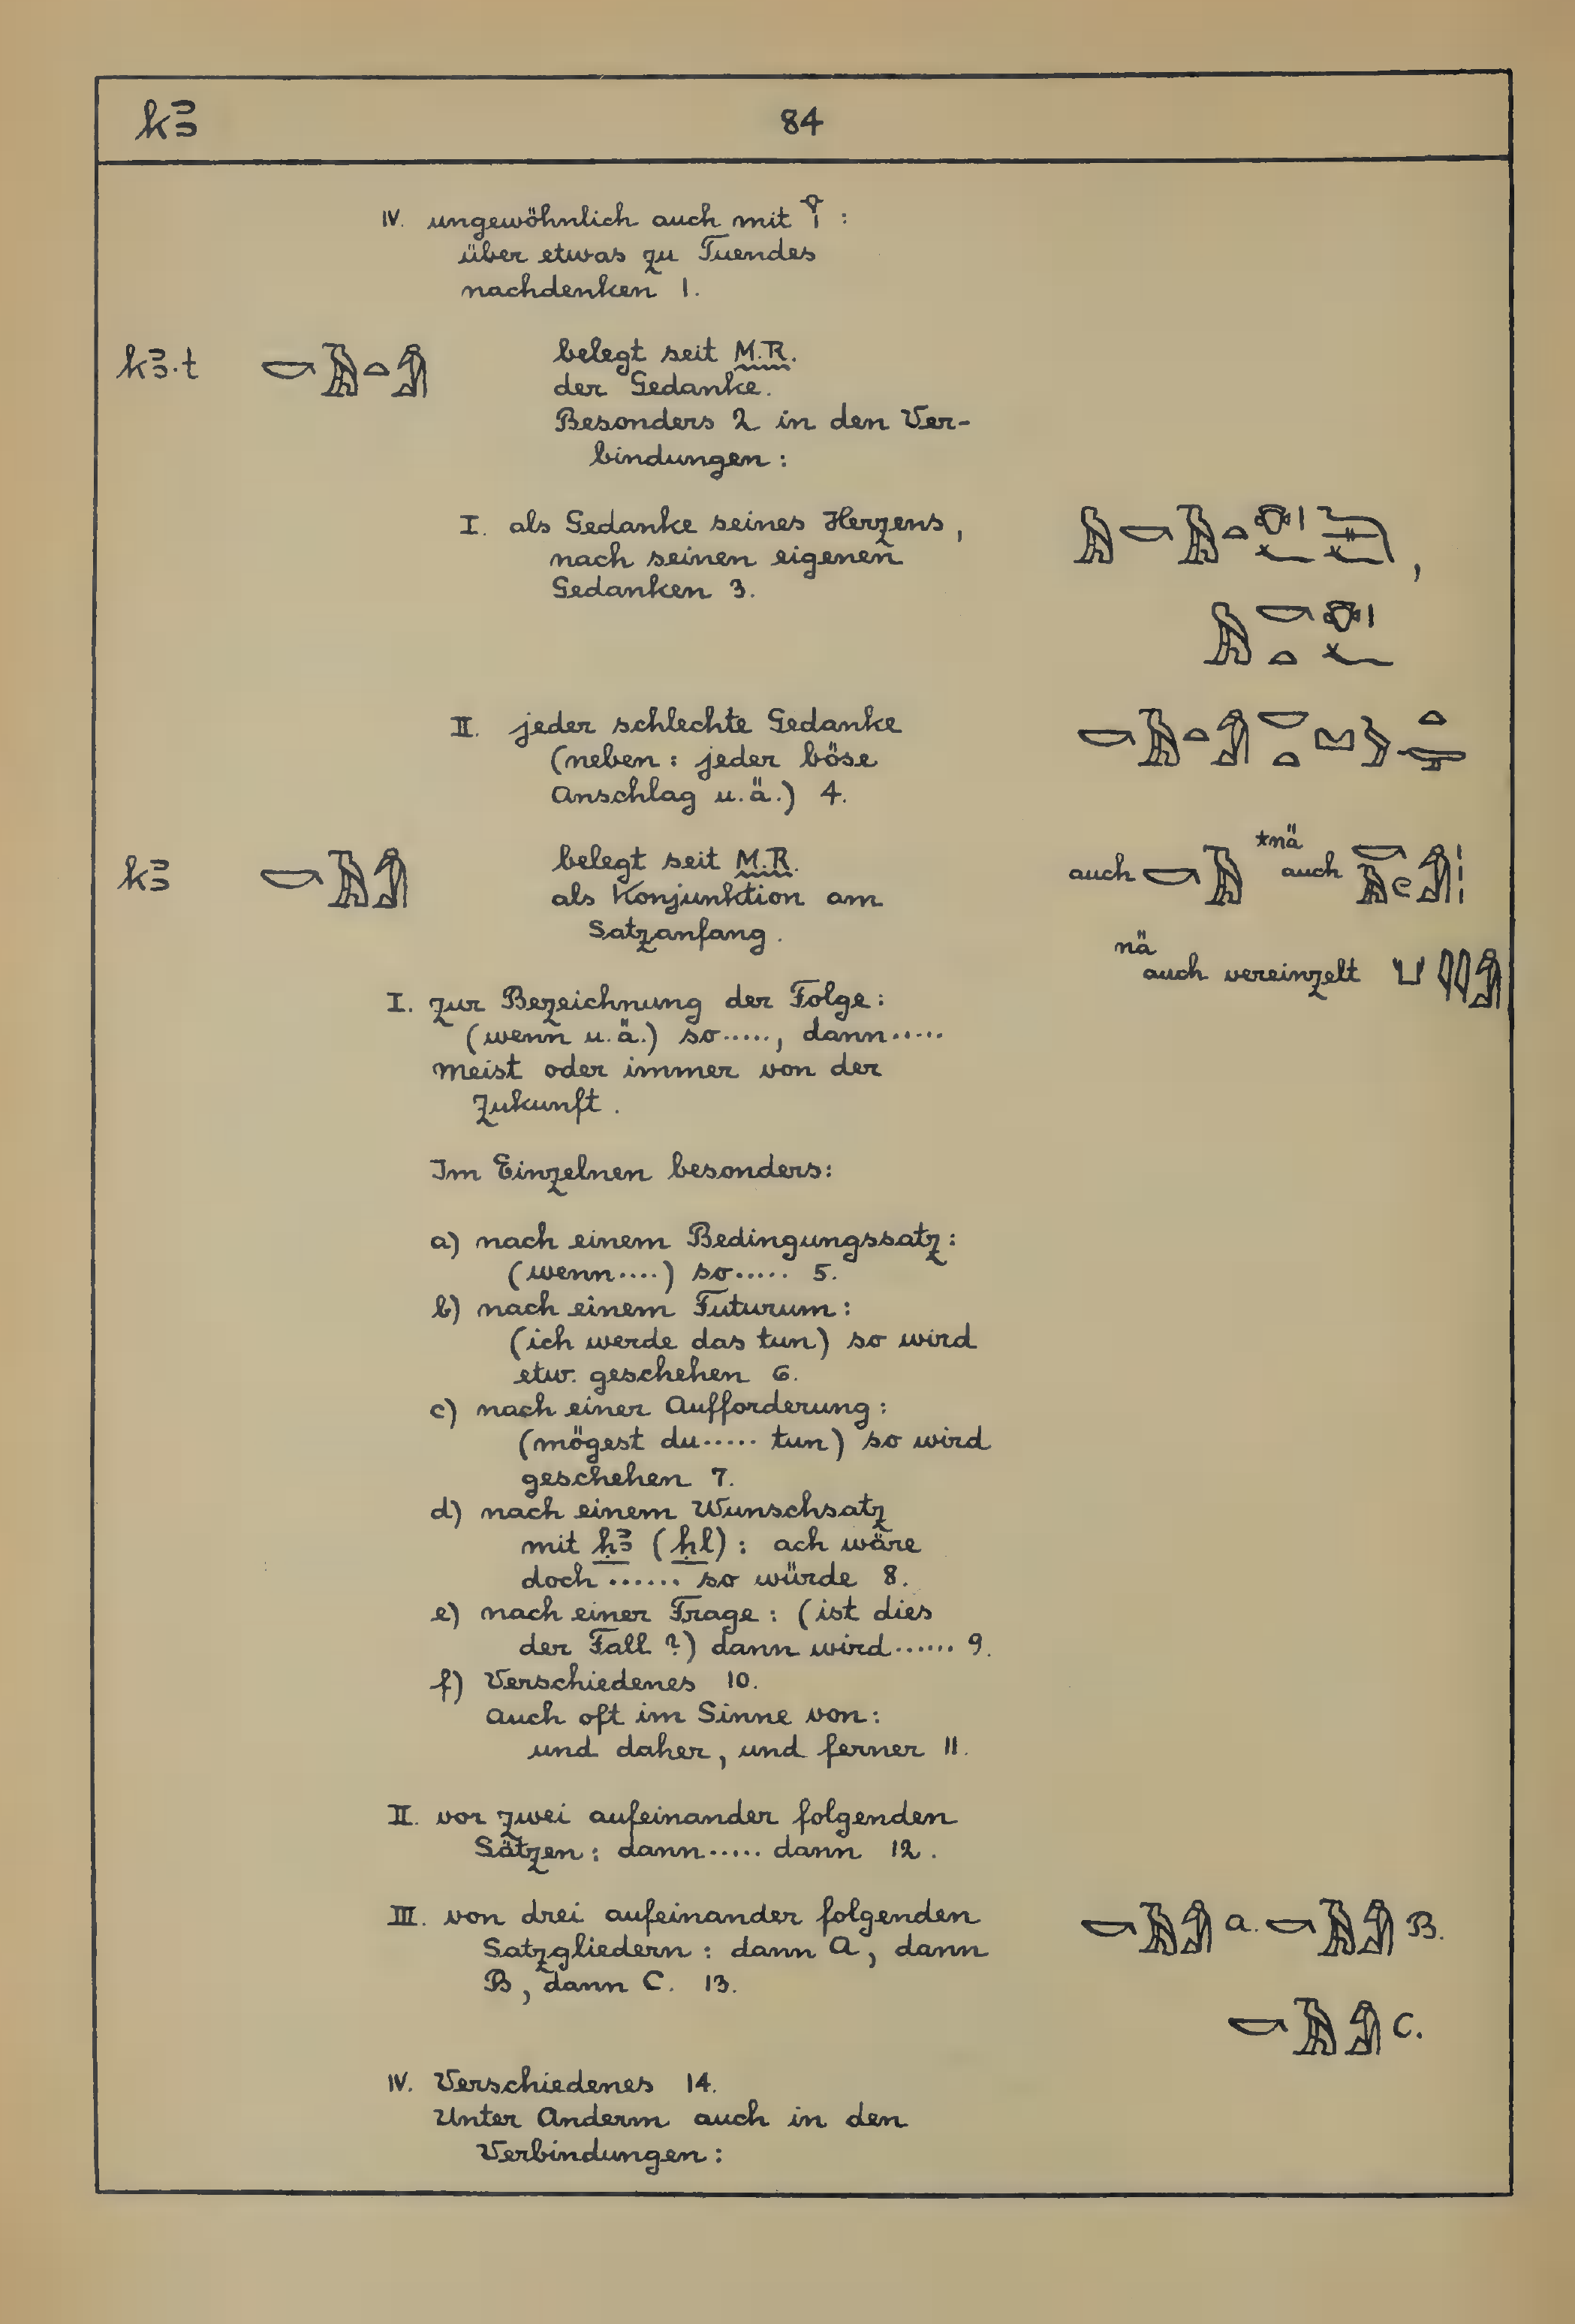 kꜣ 84
IV. ungewöhnlich auch mit 𓁷𓏤 :
über etwas zu Tuendes
nachdenken 1.
kꜣ·t 𓎡𓄿𓏏𓀁 belegt seit M.R.
der Gedanke.
Besonders 2 in den Ver-
bindungen :
I. als Gedanke seines Herzens,
nach seinen eigenen
Gedanken 3.
II. jeder schlechte Gedanke
(neben : jeder böse
Anschlag u.ä.) 4.
kꜣ 𓎡𓄿𓀁 belegt seit M.R. auch 𓎡𓄿 *nä auch
als Konjunktion am
Satzanfang.
nä
auch vereinzelt 𓂓𓇌𓀁
I. zur Bezeichnung der Folge :
(wenn u.ä.) so....., dann.....
meist oder immer von der
Zukunft.
Im Einzelnen besonders:
a) nach einem Bedingungssatz :
(wenn....) so..... 5.
b) nach einem Futurum :
(ich werde das tun) so wird
etw. geschehen 6.
c) nach einer Aufforderung :
(mögest du..... tun) so wird
geschehen 7.
d) nach einem Wunschsatz
mit ḥꜣ (ḥl) : ach wäre
doch ...... so würde 8.
e) nach einer Frage : (ist dies
der Fall ?) dann wird...... 9.
f) Verschiedenes 10.
Auch oft im Sinne von :
und daher, und ferner 11.
II. vor zwei aufeinander folgenden
Sätzen : dann..... dann 12.
III. von drei aufeinander folgenden
Satzgliedern : dann A, dann
B, dann C. 13.
𓎡𓄿𓀁 A. 𓎡𓄿𓀁 B.
𓎡𓄿𓀁 C.
IV. Verschiedenes 14.
Unter Anderm auch in den
Verbindungen :